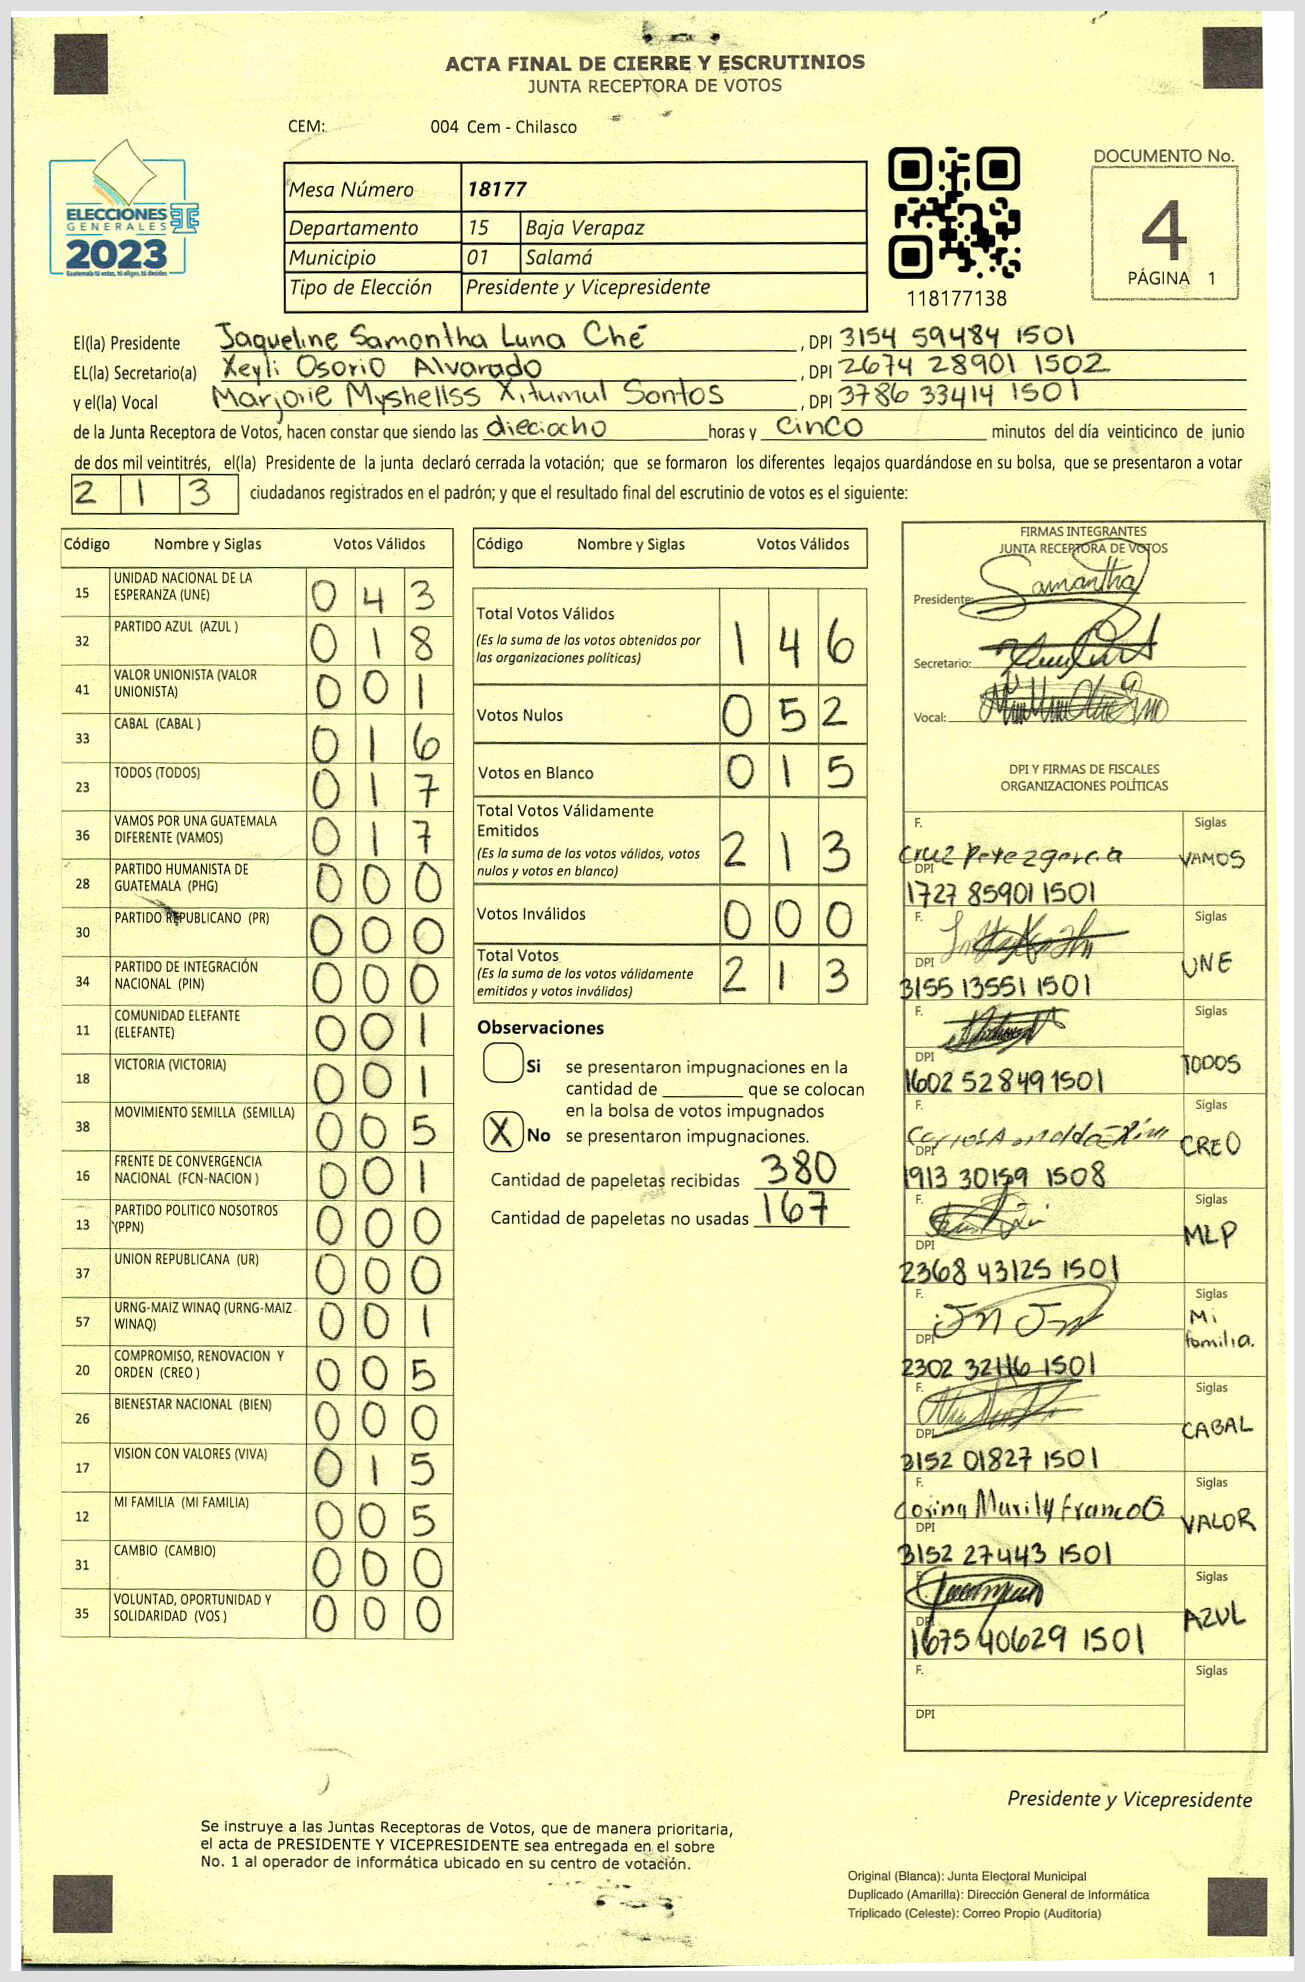 ACTA FINAL DE CIERRE Y ESCRUTINIOS
JUNTA RECEPTORA DE VOTOS
CEM: 004 Cem - Chilasco
ELECCIONES
GENERALES
2023
Guatemala tú votas, tú eliges, tú decides
Mesa Número 18177
Departamento 15 Baja Verapaz
Municipio 01 Salamá
Tipo de Elección Presidente y Vicepresidente
118177138
DOCUMENTO No.
4
PÁGINA 1
El(la) Presidente Jaqueline Samantha Luna Ché, DPI 3154 59484 1501
EL(la) Secretario(a) Xeyli Osorio Alvarado, DPI 2674 28901 1502
y el(la) Vocal Marjorie Myshellss Xitumul Santos, DPI 3786 33414 1501
de la Junta Receptora de Votos, hacen constar que siendo las dieciocho horas y cinco minutos del día veinticinco de junio
de dos mil veintitrés, el(la) Presidente de la junta declaró cerrada la votación; que se formaron los diferentes legajos guardándose en su bolsa, que se presentaron a votar
2 1 3 ciudadanos registrados en el padrón; y que el resultado final del escrutinio de votos es el siguiente:
Código Nombre y Siglas Votos Válidos
15 UNIDAD NACIONAL DE LA ESPERANZA (UNE) 0 4 3
32 PARTIDO AZUL (AZUL ) 0 1 8
41 VALOR UNIONISTA (VALOR UNIONISTA) 0 0 1
33 CABAL (CABAL ) 0 1 6
23 TODOS (TODOS) 0 1 7
36 VAMOS POR UNA GUATEMALA DIFERENTE (VAMOS) 0 1 7
28 PARTIDO HUMANISTA DE GUATEMALA (PHG) 0 0 0
30 PARTIDO REPUBLICANO (PR) 0 0 0
34 PARTIDO DE INTEGRACIÓN NACIONAL (PIN) 0 0 0
11 COMUNIDAD ELEFANTE (ELEFANTE) 0 0 1
18 VICTORIA (VICTORIA) 0 0 1
38 MOVIMIENTO SEMILLA (SEMILLA) 0 0 5
16 FRENTE DE CONVERGENCIA NACIONAL (FCN-NACION ) 0 0 1
13 PARTIDO POLITICO NOSOTROS (PPN) 0 0 0
37 UNION REPUBLICANA (UR) 0 0 0
57 URNG-MAIZ WINAQ (URNG-MAIZ WINAQ) 0 0 1
20 COMPROMISO, RENOVACION Y ORDEN (CREO ) 0 0 5
26 BIENESTAR NACIONAL (BIEN) 0 0 0
17 VISION CON VALORES (VIVA) 0 1 5
12 MI FAMILIA (MI FAMILIA) 0 0 5
31 CAMBIO (CAMBIO) 0 0 0
35 VOLUNTAD, OPORTUNIDAD Y SOLIDARIDAD (VOS ) 0 0 0
Código Nombre y Siglas Votos Válidos
Total Votos Válidos 1 4 6
(Es la suma de los votos obtenidos por
las organizaciones políticas)
Votos Nulos 0 5 2
Votos en Blanco 0 1 5
Total Votos Válidamente
Emitidos 2 1 3
(Es la suma de los votos válidos, votos
nulos y votos en blanco)
Votos Inválidos 0 0 0
Total Votos 2 1 3
(Es la suma de los votos válidamente
emitidos y votos inválidos)
Observaciones
Si se presentaron impugnaciones en la
cantidad de ________ que se colocan
en la bolsa de votos impugnados
X No se presentaron impugnaciones.
Cantidad de papeletas recibidas 380
Cantidad de papeletas no usadas 167
FIRMAS INTEGRANTES
JUNTA RECEPTORA DE VOTOS
Presidente: Samantha
Secretario:
Vocal:
DPI Y FIRMAS DE FISCALES
ORGANIZACIONES POLÍTICAS
F. Cruz Perez garcia Siglas VAMOS
DPI 1727 85901 1501
F. Siglas UNE
DPI 3155 13551 1501
F. Siglas TODOS
DPI 1602 52849 1501
F. Siglas CREO
DPI 1913 30159 1508
F. Siglas MLP
DPI 2368 43125 1501
F. Siglas Mi familia.
DPI 2302 32116 1501
F. Siglas CABAL
DPI 3152 01827 1501
F. Siglas VALOR
DPI 3152 27443 1501
F. Siglas AZUL
DPI 1675 40629 1501
F. Siglas
DPI
Presidente y Vicepresidente
Se instruye a las Juntas Receptoras de Votos, que de manera prioritaria,
el acta de PRESIDENTE Y VICEPRESIDENTE sea entregada en el sobre
No. 1 al operador de informática ubicado en su centro de votación.
Original (Blanca): Junta Electoral Municipal
Duplicado (Amarilla): Dirección General de Informática
Triplicado (Celeste): Correo Propio (Auditoría)